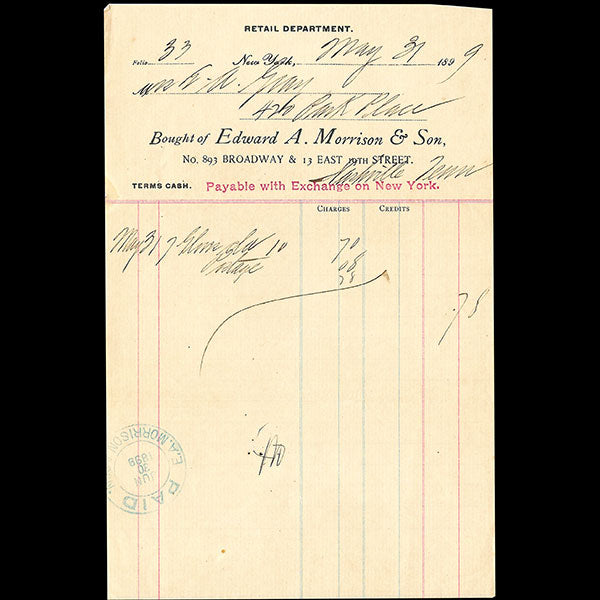 RETAIL DEPARTMENT.
Folio 33 New York, May 31 1899
Mrs A. Gray
Park Place
Bought of Edward A. Morrison & Son,
No. 893 BROADWAY & 13 EAST 19TH STREET.
Nashville Tenn
TERMS CASH. Payable with Exchange on New York.
CHARGES CREDITS
May 31 7 10 70
Postage 08
78
78
PAID
JUN
30
1899
E.A. MORRISON